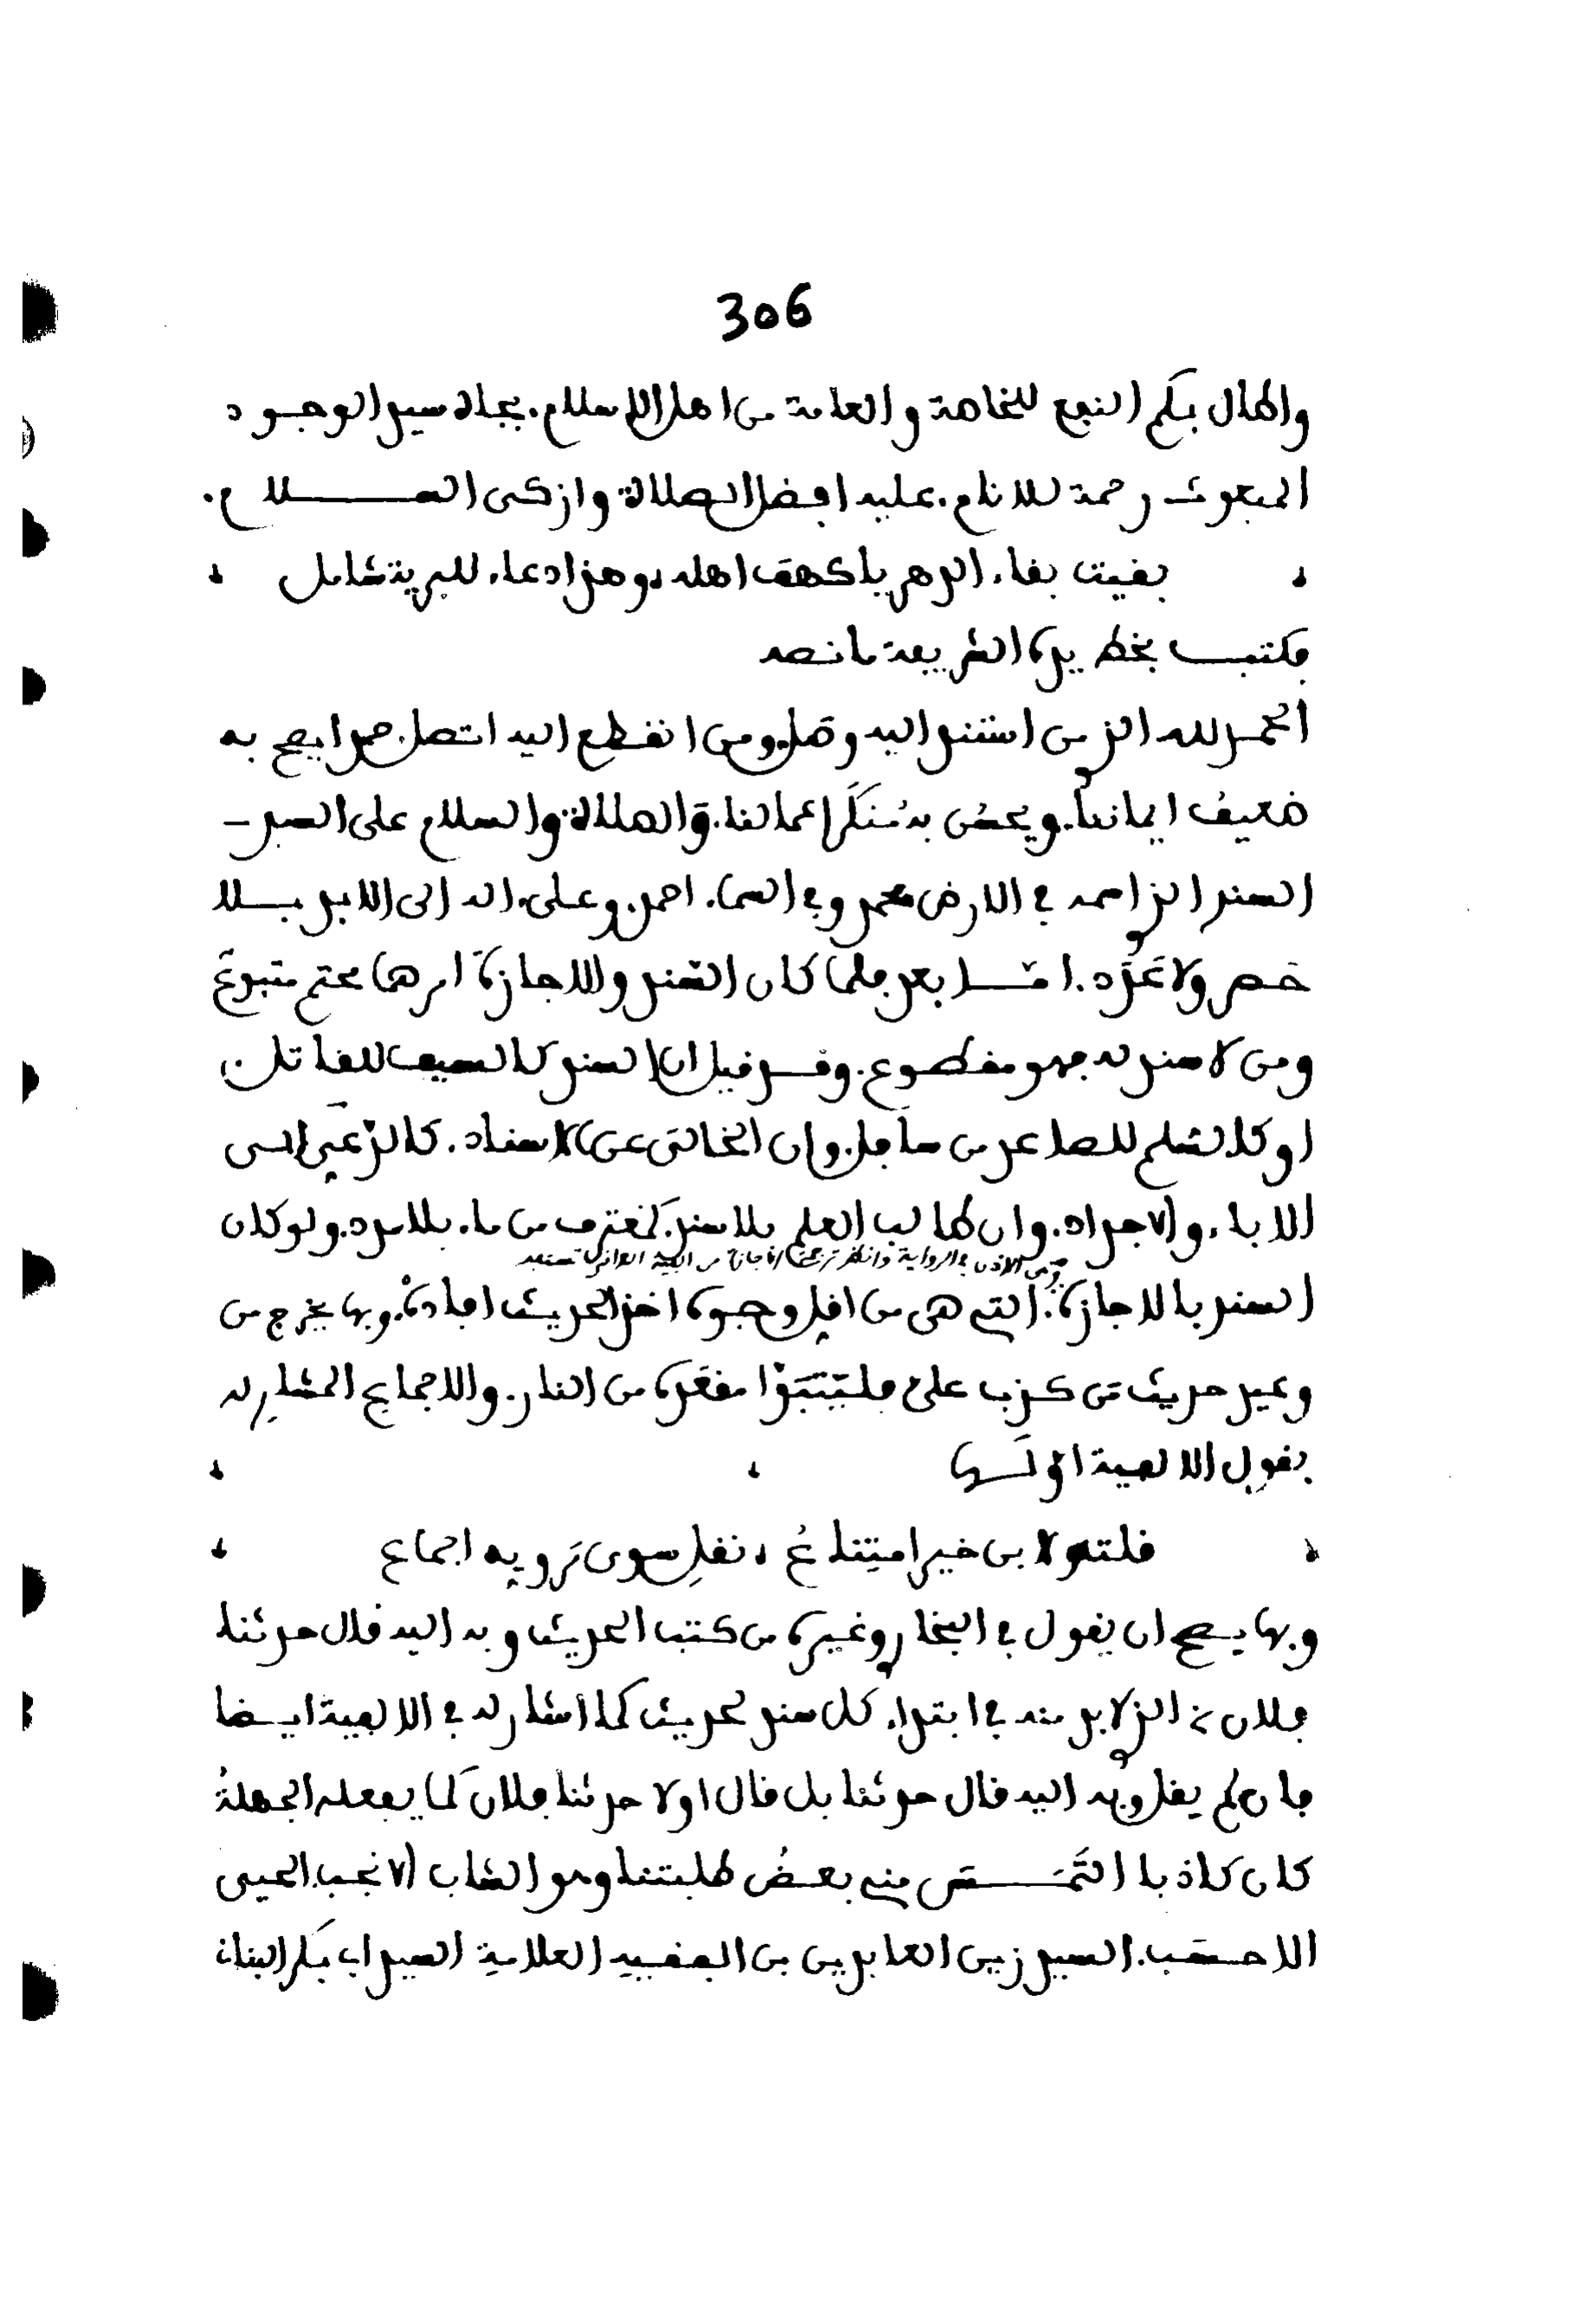 306
واطال بكم النفع للخاصة والعامة من اهل الاسلام. بجاه سيد الوجود
المبعوث رحمة للانام. عليه افضل الصلاة وازكى السلام.
بقيت بقاء الدهر يا كهف اهله، وهذا دعاء للبرية شامل
فكتبت بخط يده الشريفة ما نصه
الحمد لله الذي من استند اليه وصل. ومن انقطع اليه اتصل. حمدا يصح به
ضعيف ايماننا. ويحسن به مُنكَر اعمالنا. والصلاة والسلام على السيد
السند الذي اسمه في الارض محمد وفي السماء احمد. وعلى اله الى الابد بلا
حصر ولا عدد. امّا بعد فلما كان السند والاجازة امرهما محتم متبوع
ومن لا سند له فهو مقطوع. وقد قيل ان السند كالسيف للمقاتل.
او كالسلم للصاعد من سافل. وان الخالي عن الاسناد. كالدّعي المنسي
الاباء والاجداد. وان طالب العلم بلا سند. كمغترف من ماء بلا يد. ولو كان
وهي الاذن في الرواية وانظر ترجمة الاجازة من الفية العراقي تستفد
السند بالاجازة. التي هي من اقل وجوه اخذ الحديث افادة. وبها يخرج من
وعيد حديث من كذب علي فليتبوّا مقعده من النار. والاجماع المشار له
بقول الالفية اوّلها
قلت ولابن خير امتناعُ، نقلِ سوى مرويه اجماع
وبها يصح ان يقول في البخاري وغيره من كتب الحديث وبه اليه قال حدثنا
فلان الخ الذي لا بد منه في ابتداء كل سند لحديث كما اشار له في الالفية ايضا
فان لم يقل وبه اليه قال حدثنا بل قال اولا حدثنا فلان كما يفعله الجهلةُ
كان كاذبا التَمَس مني بعضُ طلبتنا وهو الشاب الانجب. الحيي
الاحسب. السيد زين العابدين بن الفقيه العلامة السيد ابي بكر البناني